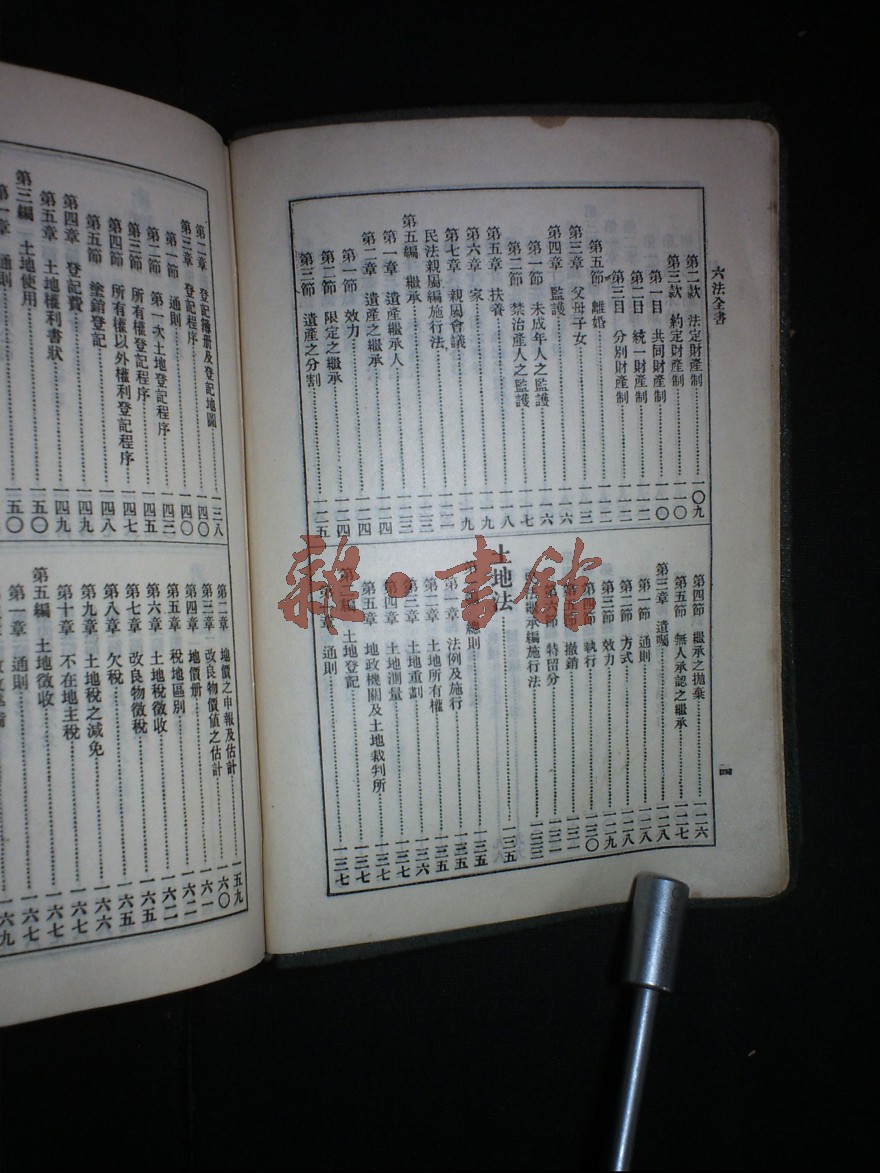 六法全書
第二款 法定財產制 一〇九
第三款 約定財產制 一一〇
第一目 共同財產制 一一〇
第二目 統一財產制 一一二
第三目 分別財產制 一一二
第五節 離婚 一一二
第三章 父母子女 一一三
第四章 監護 一一六
第一節 未成年人之監護 一一六
第二節 禁治產人之監護 一一七
第五章 扶養 一一八
第六章 家 一一九
第七章 親屬會議 一一九
民法親屬編施行法 一二二
第五編 繼承 一二三
第一章 遺產繼承人 一二三
第二章 遺產之繼承 一二四
第一節 效力 一二四
第二節 限定之繼承 一二四
第三節 遺產之分割 一二五
第四節 繼承之拋棄 一二六
第五節 無人承認之繼承 一二七
第三章 遺囑 一二八
第一節 通則 一二八
第二節 方式 一二八
第三節 效力 一二九
第四節 執行 一三〇
第五節 撤銷 一三一
第六節 特留分 一三二
民法繼承編施行法 一三三
土地法 一三五
總則 一三五
第一章 法例及施行 一三五
第二章 土地所有權 一三五
第三章 土地重劃 一三六
第四章 土地測量 一三七
第五章 地政機關及土地裁判所 一三七
第二編 土地登記 一三七
第一章 通則 一三七
四
第二章 登記簿册及登記地圖 一三八
第三章 登記程序 一四〇
第一節 通則 一四〇
第二節 第一次土地登記程序 一四三
第三節 所有權登記程序 一四五
第四節 所有權以外權利登記程序 一四七
第五節 塗銷登記 一四八
第四章 登記費 一四九
第五章 土地權利書狀 一四九
第三編 土地使用 一五〇
第一章 通則 一五〇
第二章 地價之申報及估計 一五九
第三章 改良物價值之估計 一六〇
第四章 地價册 一六一
第五章 稅地區別 一六二
第六章 土地稅徵收 一六二
第七章 改良物徵稅 一六五
第八章 欠稅 一六五
第九章 土地稅之減免 一六六
第十章 不在地主稅 一六七
第五編 土地徵收 一六七
第一章 通則 一六七
六九
雜·書館